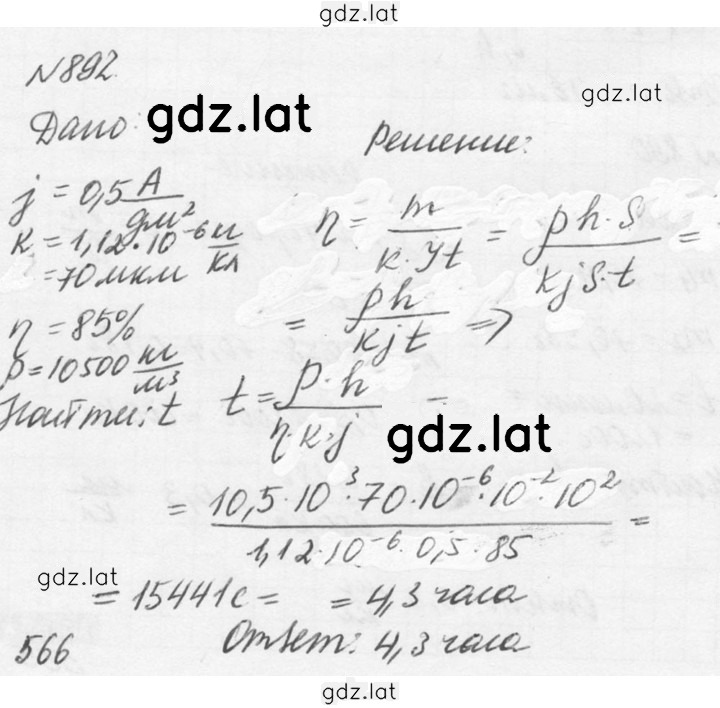 gdz.lat
N892
gdz.lat
Дано: gdz.lat
Решение:
j = 0,5 А/дм²
к = 1,12·10⁻⁶ кг/кл
= 70 мкм
η = 85%
ρ = 10500 кг/м³
Найти: t
η = m / к·Jt = ρh·S / kjS·t =
= ρh / kjt ⇒
t = ρ·h / η·к·j =
gdz.lat
= 10,5·10³·70·10⁻⁶·10⁻²·10² / 1,12·10⁻⁶·0,5·85 =
gdz.lat
= 15441с = = 4,3 часа
Ответ: 4,3 часа
566
gdz.lat